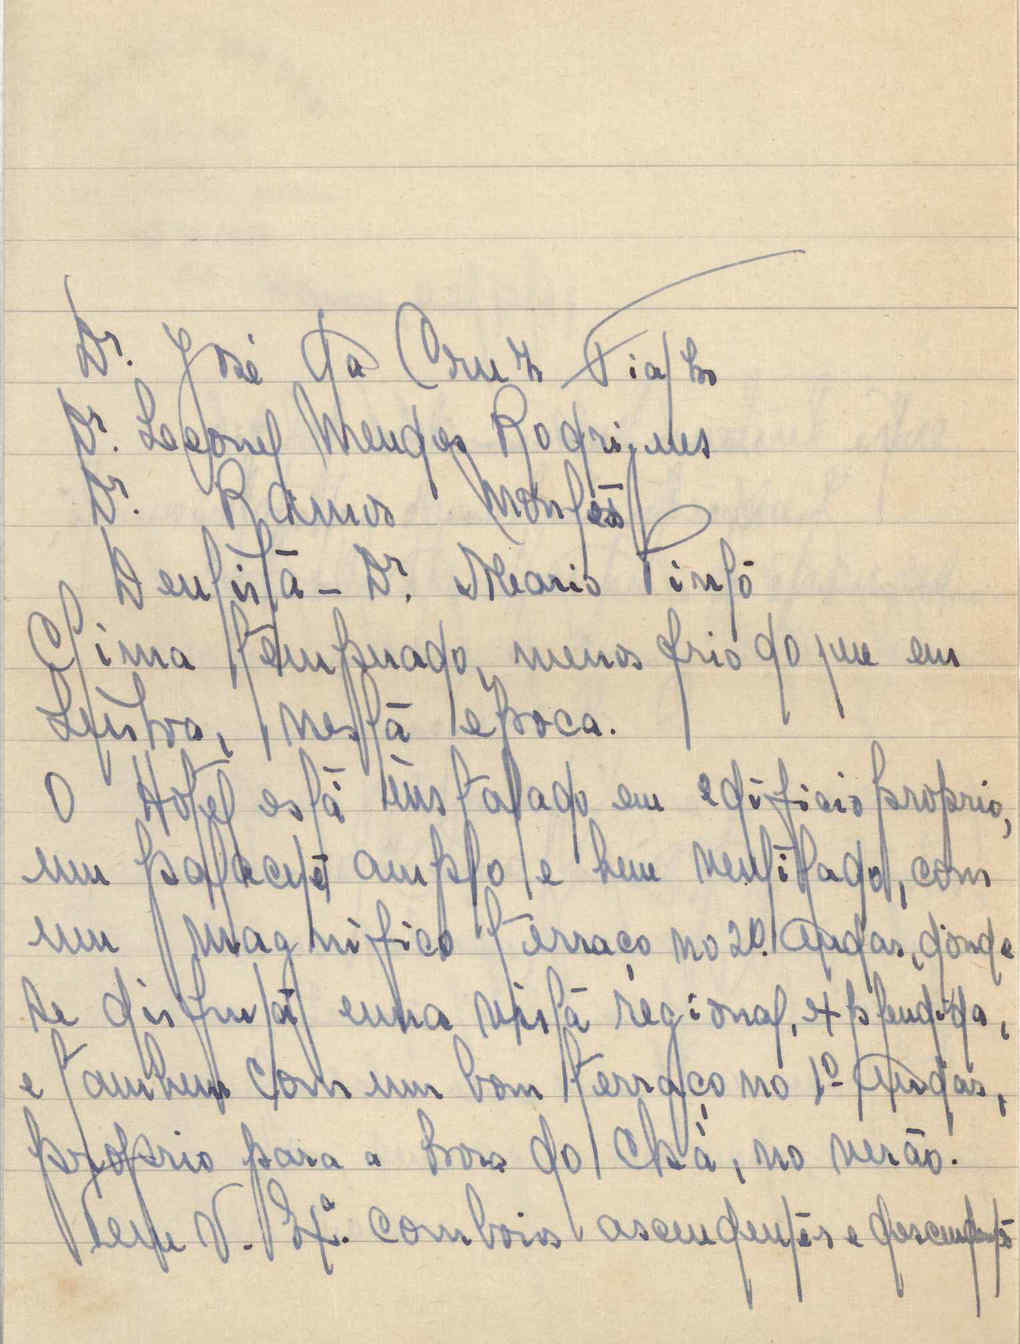 Dr. José da Cruz Tiapo
Dr. Leeonel Mendes Rodrigues
Dr. Ramos
Dentista - Dr. Mario Pinto
Clima temperado, menos frio do que em
Lisboa, nesta epoca.
O Hotel está instalado em edificio proprio,
num palacete amplo e bem ventilado, com
um magnifico terraço no 2º. Andar, donde
se disfruta uma vista regional, explendida,
e tambem com um bom terraço no 1º Andar,
proprio para a hora do chá, no verão.
Tem V. Exª. comboios ascendentes e descendentes